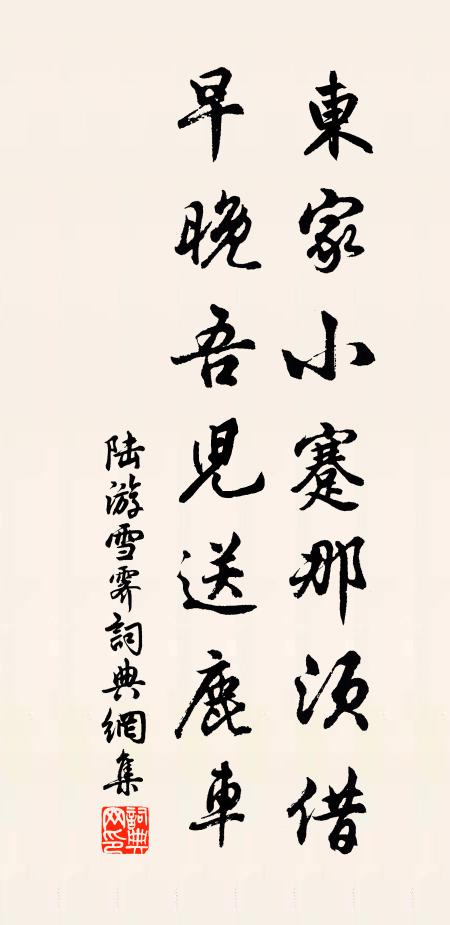 東家小蹇那須借
早晚吾兒送鹿車
陆游雪霽詞典網集
詞典網印